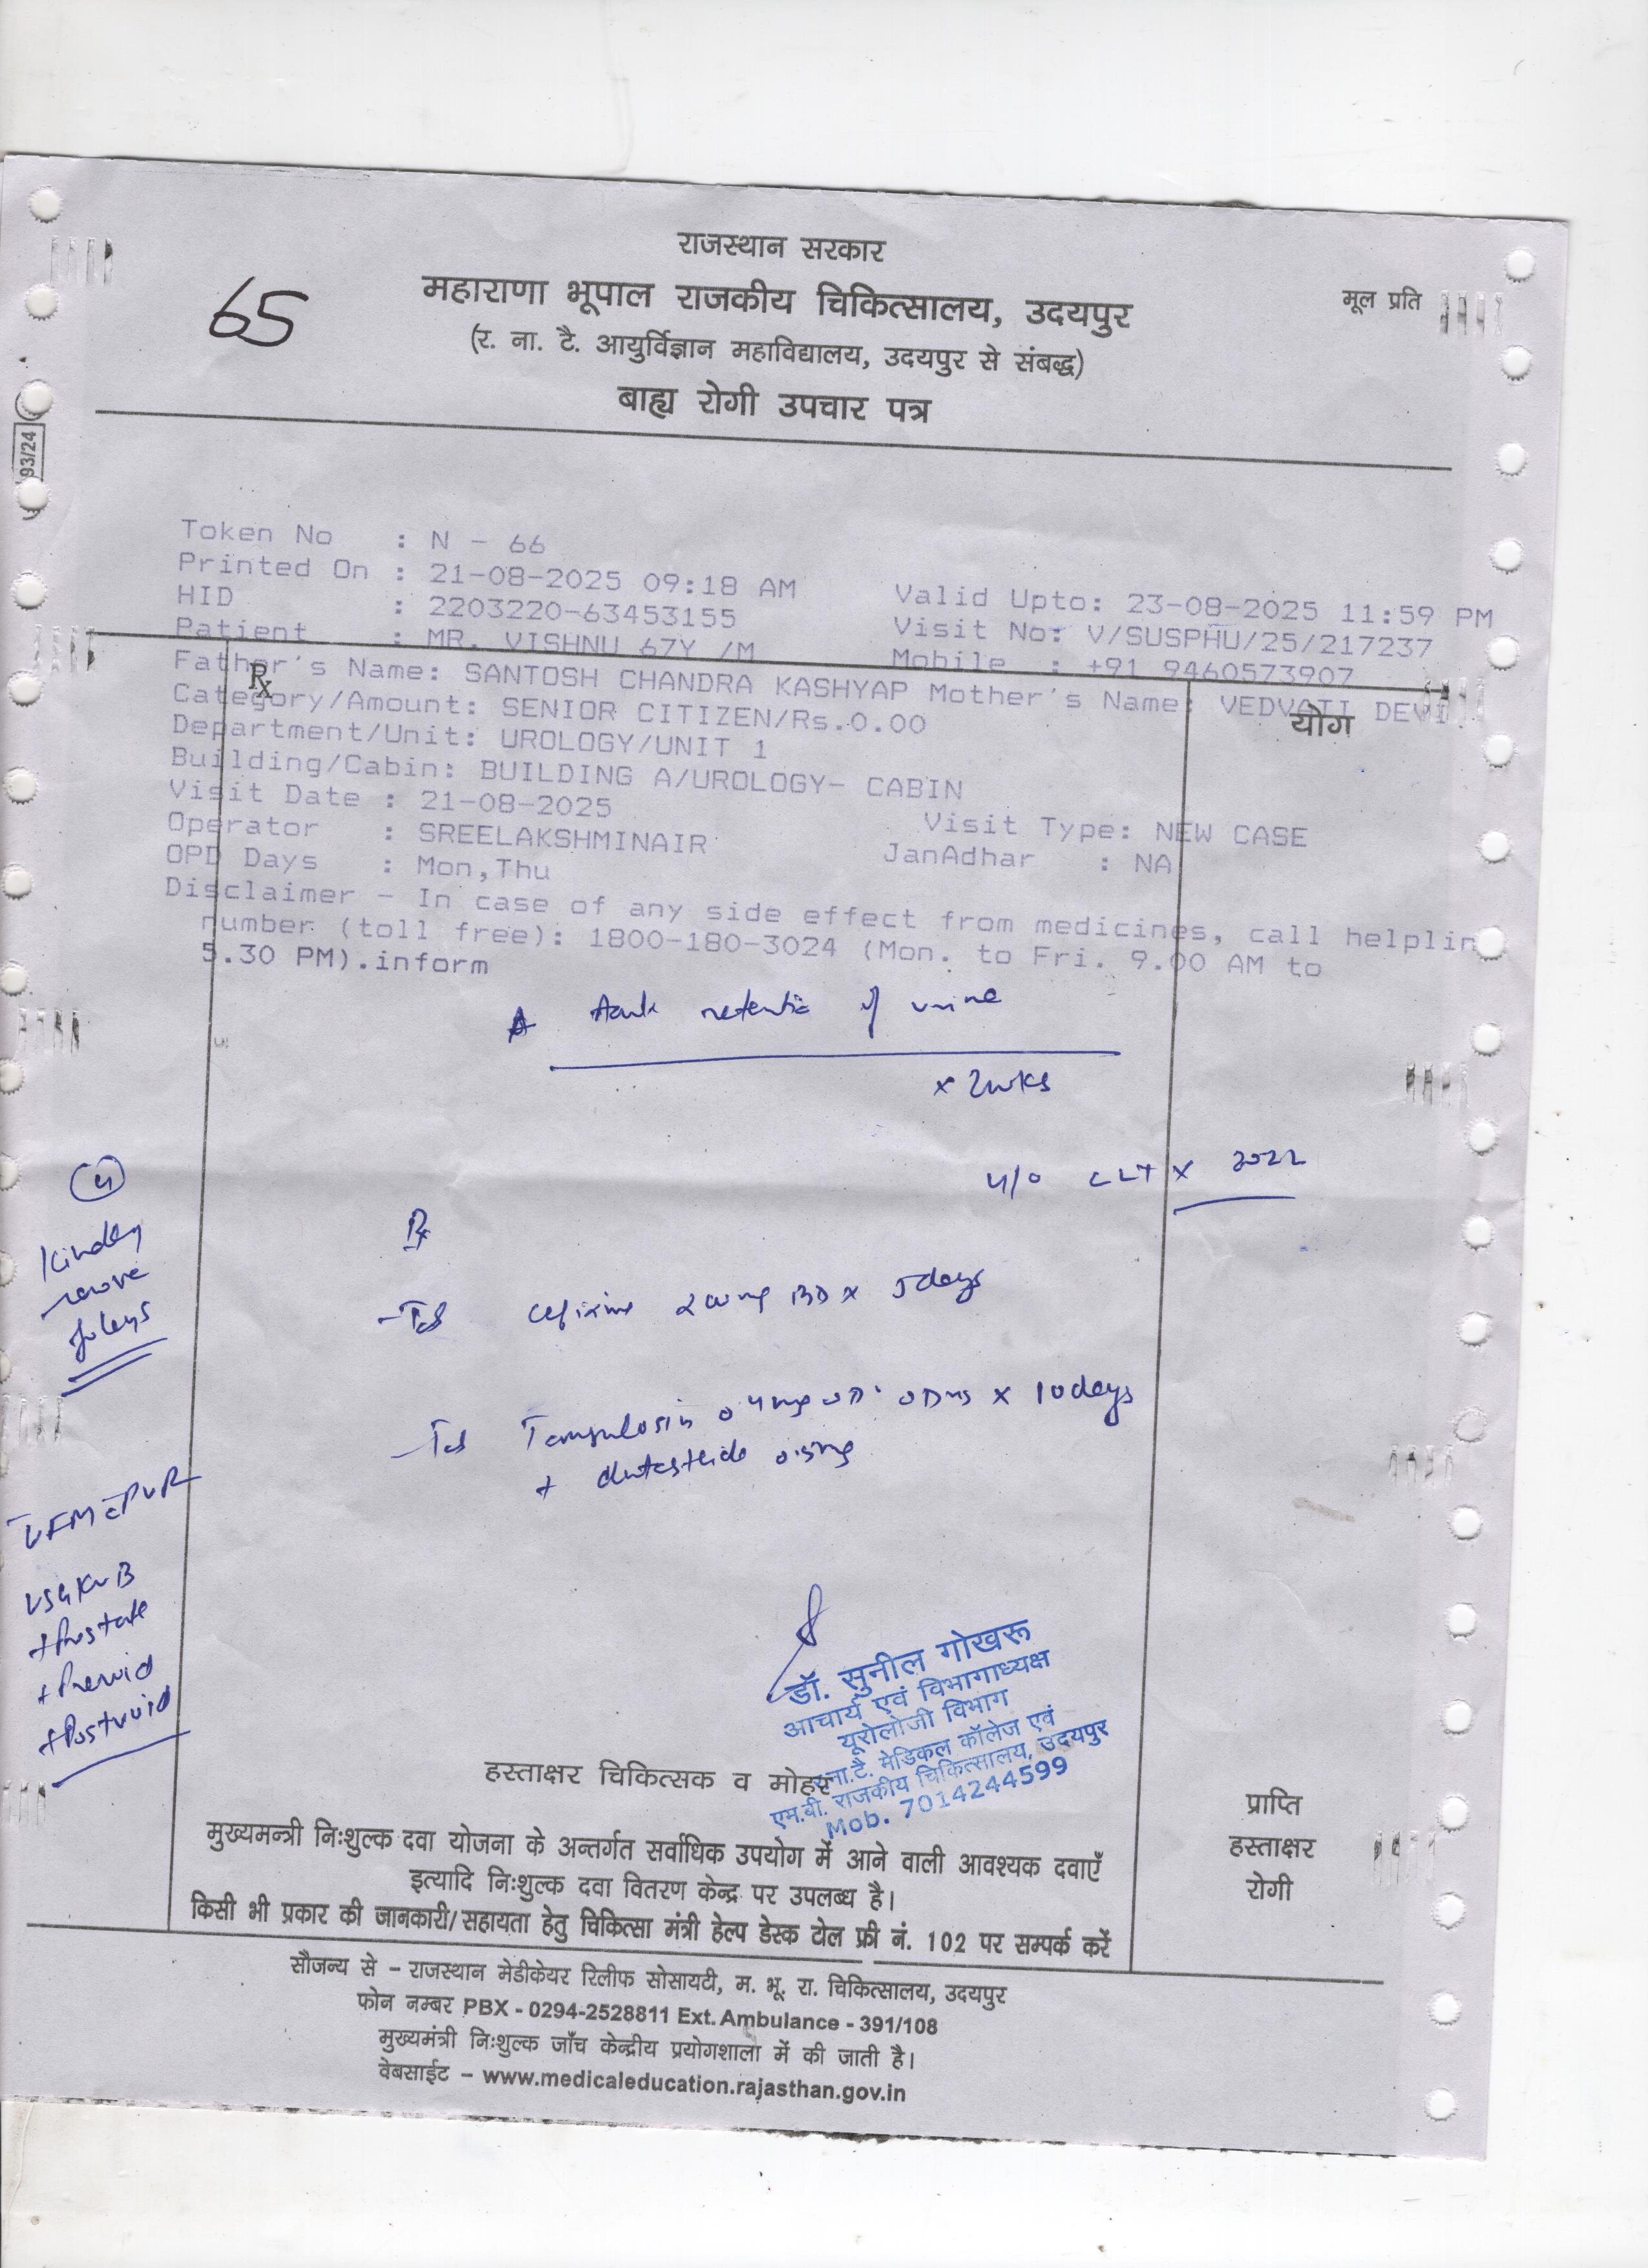 राजस्थान सरकार
65
महाराणा भूपाल राजकीय चिकित्सालय, उदयपुर
मूल प्रति
(र. ना. टै. आयुर्विज्ञान महाविद्यालय, उदयपुर से संबद्ध)
बाह्य रोगी उपचार पत्र
93/24
Token No : N - 66
Printed On : 21-08-2025 09:18 AM Valid Upto: 23-08-2025 11:59 PM
HID : 2203220-63453155 Visit No: V/SUSPHU/25/217237
Patient : MR. VISHNU 67Y /M Mobile : +91 9460573907
Father's Name: SANTOSH CHANDRA KASHYAP Mother's Name: VEDVATI DEVI
Rx
योग
Category/Amount: SENIOR CITIZEN/Rs.0.00
Department/Unit: UROLOGY/UNIT 1
Building/Cabin: BUILDING A/UROLOGY- CABIN
Visit Date : 21-08-2025 Visit Type: NEW CASE
Operator : SREELAKSHMINAIR JanAdhar : NA
OPD Days : Mon,Thu
Disclaimer - In case of any side effect from medicines, call helplin
number (toll free): 1800-180-3024 (Mon. to Fri. 9.00 AM to
5.30 PM).inform
retentio of urine
x 2wks
x 2022
Rx
Kindly
remove
foleys
Cefixime 200mg BD x 5days
Tamsulosin 0.4mg x 10days
+ dutasteride 0.5mg
UFM c PVR
USG KUB
+ Prostate
+ Prevoid
+ Postvoid
डॉ. सुनील गोखरू
आचार्य एवं विभागाध्यक्ष
यूरोलोजी विभाग
र.ना.टै. मेडिकल कॉलेज एवं
एम.बी. राजकीय चिकित्सालय, उदयपुर
Mob. 7014244599
हस्ताक्षर चिकित्सक व मोहर
प्राप्ति
हस्ताक्षर
रोगी
मुख्यमन्त्री निःशुल्क दवा योजना के अन्तर्गत सर्वाधिक उपयोग में आने वाली आवश्यक दवाएँ
इत्यादि निःशुल्क दवा वितरण केन्द्र पर उपलब्ध है।
किसी भी प्रकार की जानकारी/सहायता हेतु चिकित्सा मंत्री हेल्प डेस्क टोल फ्री नं. 102 पर सम्पर्क करें
सौजन्य से - राजस्थान मेडीकेयर रिलीफ सोसायटी, म. भू. रा. चिकित्सालय, उदयपुर
फोन नम्बर PBX - 0294-2528811 Ext. Ambulance - 391/108
मुख्यमंत्री निःशुल्क जाँच केन्द्रीय प्रयोगशाला में की जाती है।
वेबसाईट - www.medicaleducation.rajasthan.gov.in